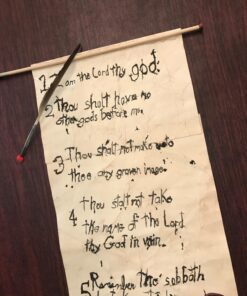 1 I am the Lord thy god.
2 Thou shalt have no
other gods before me.
3 Thou shalt not make unto
thee any graven image.
4 thou shalt not take
the name of the Lord
thy God in vain.
5 Remember the sabbath